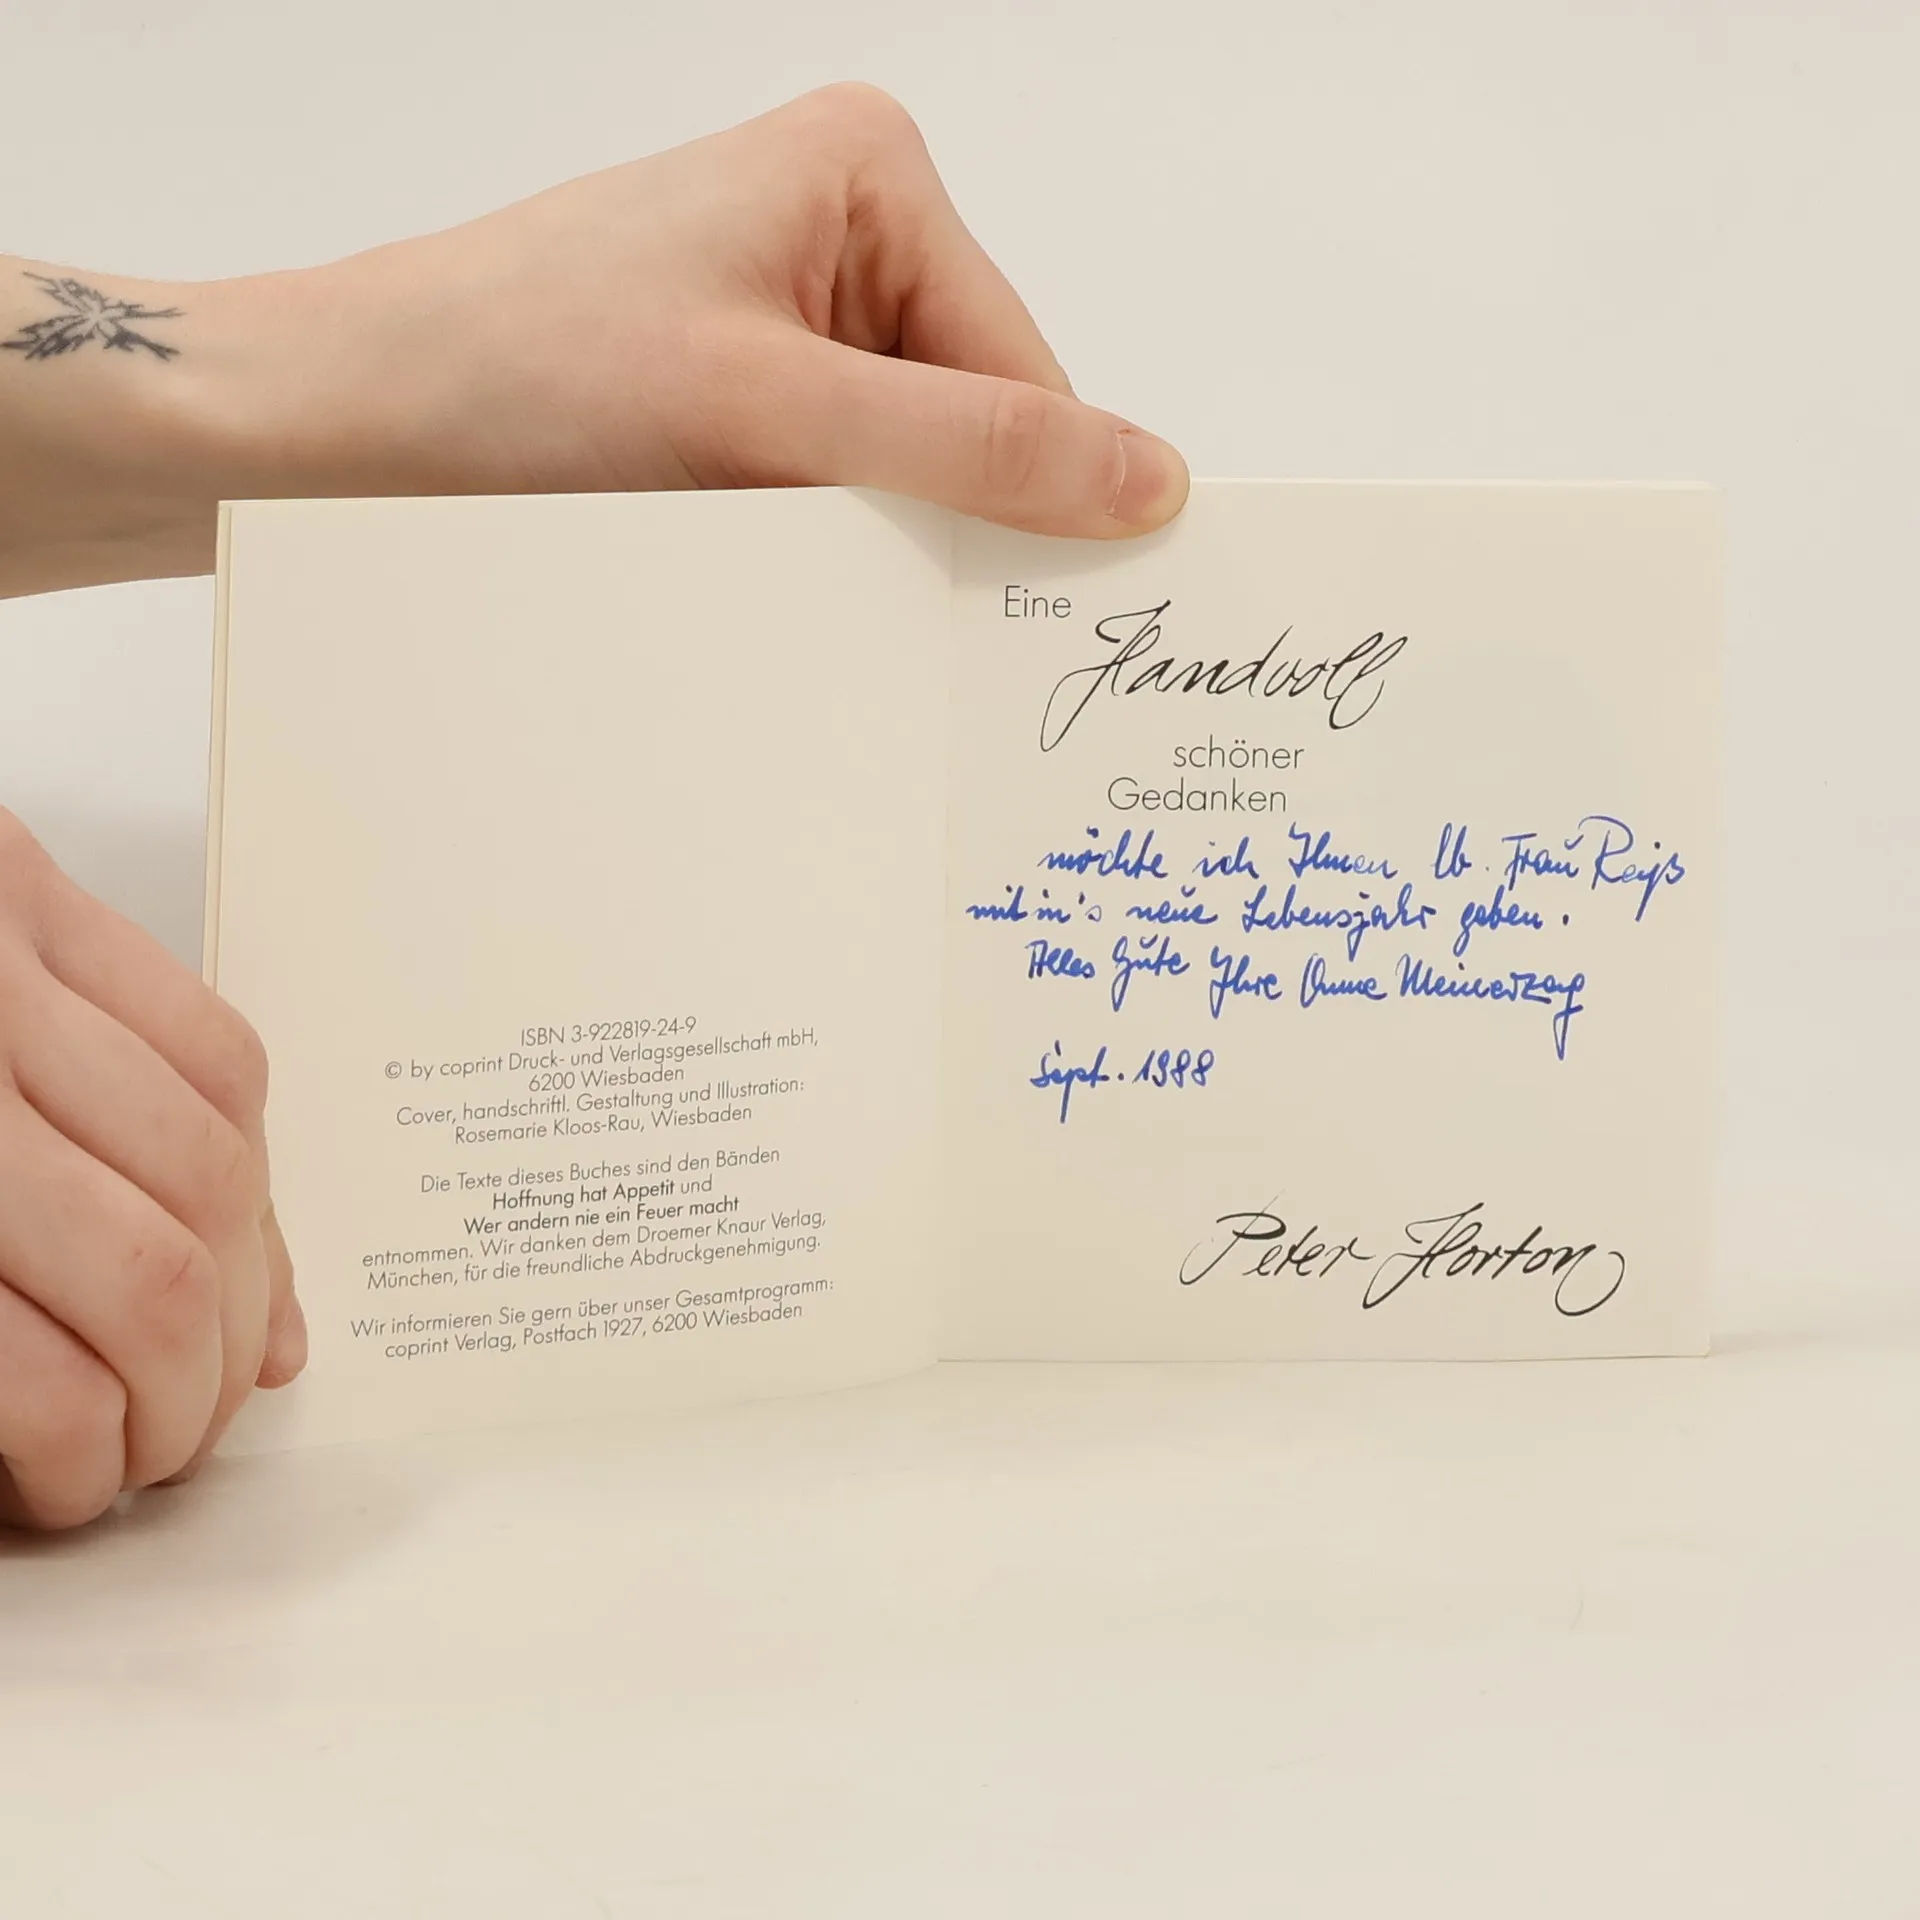 ISBN 3-922819-24-9
© by coprint Druck- und Verlagsgesellschaft mbH,
6200 Wiesbaden
Cover, handschriftl. Gestaltung und Illustration:
Rosemarie Kloos-Rau, Wiesbaden
Die Texte dieses Buches sind den Bänden
Hoffnung hat Appetit und
Wer andern nie ein Feuer macht
entnommen. Wir danken dem Droemer Knaur Verlag,
München, für die freundliche Abdruckgenehmigung.
Wir informieren Sie gern über unser Gesamtprogramm:
coprint Verlag, Postfach 1927, 6200 Wiesbaden
Eine
Handvoll
schöner
Gedanken
möchte ich Ihnen lb. Frau
mit in's neue Lebensjahr geben.
Alles Gute Ihre
Sept. 1988
Peter Horton